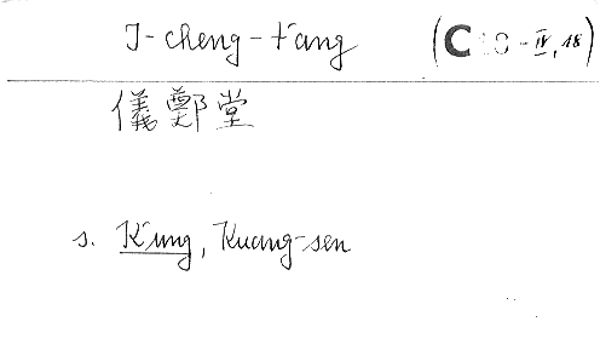 I-cheng-t'ang (C 10 - IV, 18)
儀鄭堂
s. K'ung, Kuang-sen